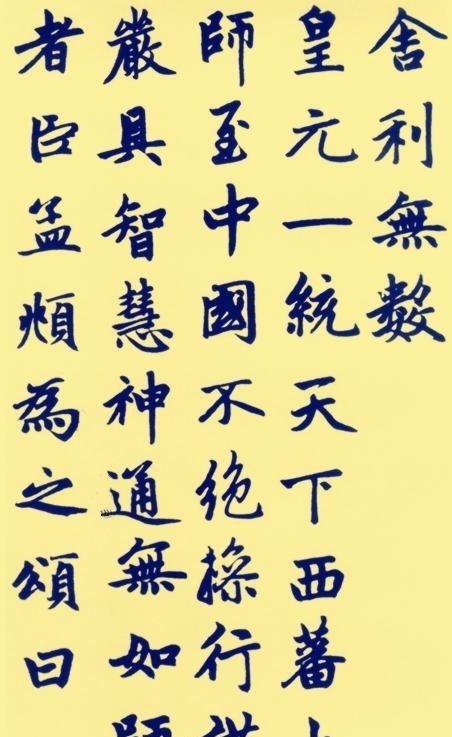 舍利無數
皇元一統天下西蕃
師至中國不絕操行
嚴具智慧神通無如
者臣孟頫為之頌曰